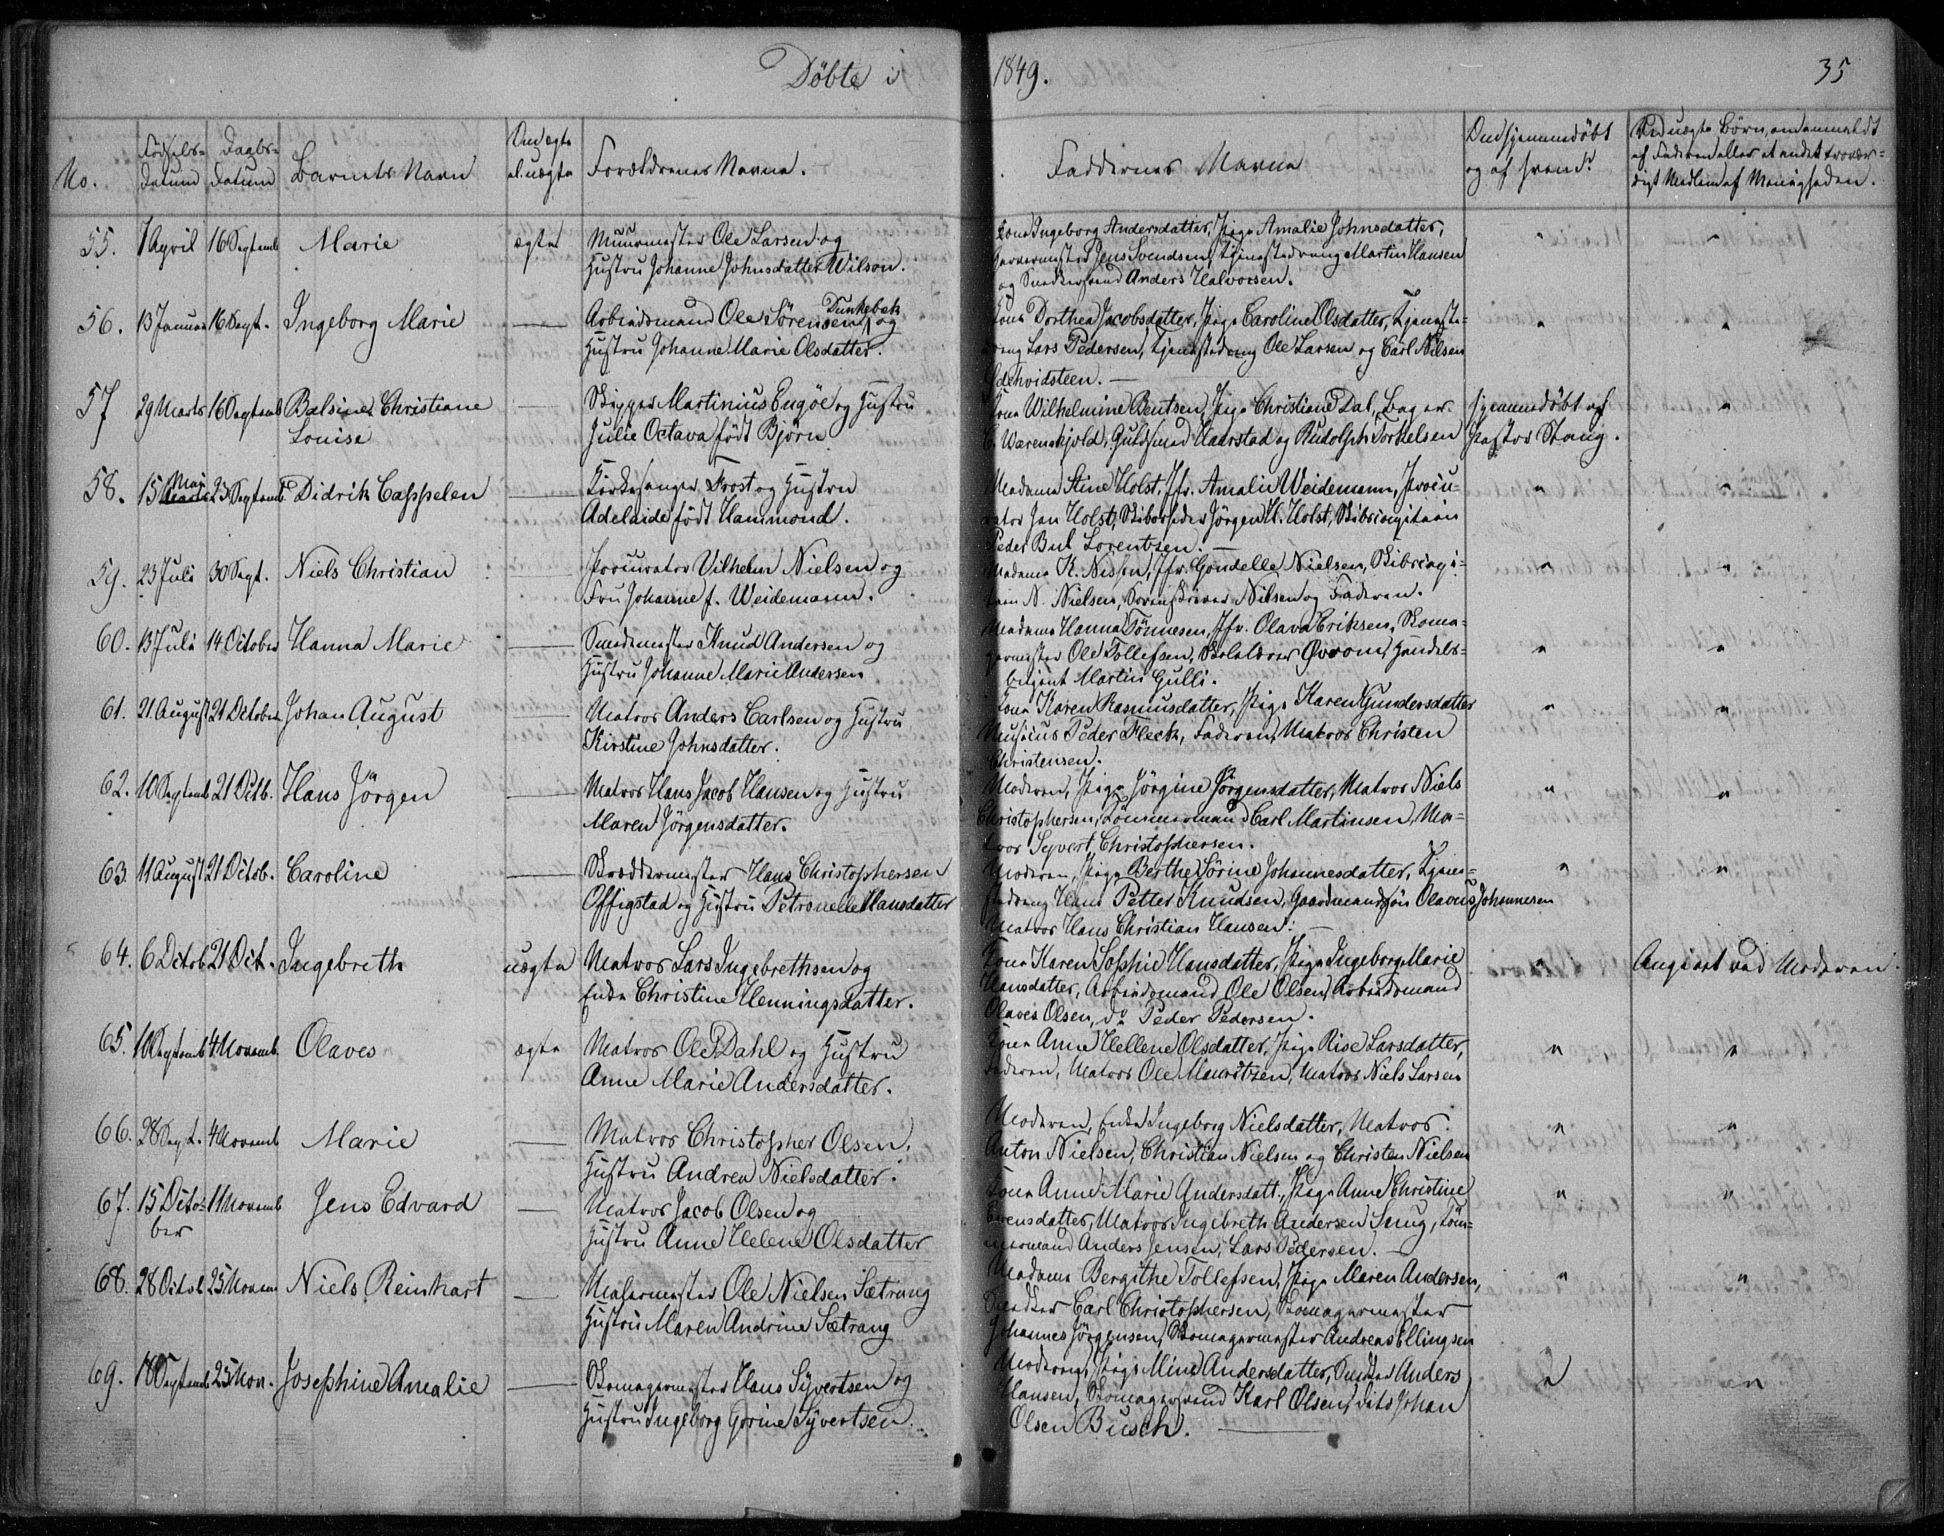 Döbte i 1849.
35
No.
Fødsels-
datum
Daabs-
datum
Barnets Navn
Om ægte
el. uægte
Forældrenes Navne.
Faddernes Navne
Om hjemmedøbt
og af hvem?
Ved uægte Børn, om anmeldt
af Faderen eller et andet trovær-
digt Medlem af Menigheden.
55. 7 April 16 Septemb Marie ægte
Muurmester Ole Larsen og
Hustru Johanne Johnsdatter Wilson.
Kone Ingeborg Andersdatter, Pige Amalie Johnsdatter,
Garvermester Jens Svendsen, Tjenestedreng Martin Hansen
og Snedkersvend Anders Halvorsen.
56. 13 Januar 16 Sept. Ingeborg Marie —
Arbeidsmand Ole Sörensen Dunkebek og
Hustru Johanne Marie Olsdatter.
Kone Dorthea Jacobsdatter, Pige Caroline Olsdatter, Tjeneste-
dreng Lars Pedersen, Tjenestedreng Ole Larsen og Carl Nilsen
Odehvidsteen. —
57 29 Marts 16 Septemb Balsine Christiane
Louise —
Skipper Martinius Engöe og Hustru
Julie Octava født Bjørn
Kone Wilhelmine Bentsen, Pige Christiane Dal, Bager
C. Warenskjold, Guldsmed Haarstad og Rudolph Torkelsen
hjemmedøbt af
Pastor Stang.
58. 15 Maj 23 Septemb P Didrik Cappelen —
Kirkesanger Frost og Hustru
Adelaide født Hammond.
Madame Stine Holst, Jfr. Amalie Weidemann, Procu-
rator Jan Holst, Skibsreder Jörgen H. Holst, Skibscapitain
Peder But Lorentzen. —
59. 23 Juli 30 Sept. Niels Christian —
Procurator Vilhelm Nielsen og
Fru Johanne f. Weidemann.
Madame K. Nissen, Jfr. Gondelle Nielsen, Skibscapi-
tain N. Nielsen, Sorenskriver Nilsen og Faderen.
60. 13 Juli 14 October Hanna Marie —
Smedemester Knud Andersen og
Hustru Johanne Marie Andersen
Madame Hanna Tönnesen, Jfr. Olava Eriksen, Skoma-
germester Ole Tollefsen, Skolelærer Øvrom, Handels-
betjent Martin Gulli.
61. 21 August 21 October Johan August —
Matros Anders Carlsen og Hustru
Kirstine Johnsdatter.
Kone Karen Rasmusdatter, Pige Karen Gundersdatter
Musicus Peder Fleck, Faderen, Matros Christen
Christensen.
62. 10 Septemb 21 Octb. Hans Jörgen —
Matros Hans Jacob Hansen og Hustru
Maren Jörgensdatter.
Moderen, Pige Jörgine Jörgensdatter, Matros Niels
Christophersen, Tömmermand Carl Martinsen, Ma-
tros Syvert Christophersen.
63 11 August 21 Octob. Caroline —
Skræddermester Hans Christophersen
Offigstad og Hustru Petronelle Hansdatter
Moderen, Pige Berthe Sörine Johannesdatter, Tjene-
stedreng Hans Petter Knudsen, Gaardmandssön Olavus Johannesen
Matros Hans Christian Hansen. —
64. 6 Octob 21 Oct. Ingebreth uægte
Matros Lars Ingebrethsen og
Enke Christine Henningsdatter.
Kone Karen Sophie Hansdatter, Pige Ingeborg Marie
Hansdatter, Arbeidsmand Ole Olsen, Arbeidsmand
Olaves Olsen, do Peder Pedersen.
Angivet ved Moderen.
65. 10 Septemb 4 Novemb. Olaves ægte
Matros Ole Dahl og Hustru
Anne Marie Andersdatter.
Kone Anne Hellene Olsdatter, Pige Rise Larsdatter,
Faderen, Matros Ole Mauritzen, Matros Niels Larsen
66. 28 Sept. 4 Novemb Marie —
Matros Christopher Olsen,
Hustru Andrea Nielsdatter.
Moderen, Enke Ingeborg Nielsdatter, Matros
Anton Nielsen, Christian Nielsen og Christen Nielsen
67. 15 Octo-
ber 11 Novemb Jens Edvard —
Matros Jacob Olsen og
Hustru Anne Helene Olsdatter
Kone Anne Marie Andersdatt., Pige Anne Christine
Evensdatter, Matros Ingebreth Andersen Snug, Töm-
mermand Anders Jensen, Lars Pedersen. —
68. 28 Octob 25 Novem Niels Reinhart —
Malermester Ole Nielsen Sætrang
Hustru Maren Andrine Sætrang
Madame Bergithe Tollefsen, Pige Maren Andersen,
Snedker Carl Christophersen, Skomagermester
Johannes Jörgensen, Skomagermester Andreas Ellingsen
69. 18 Septemb 25 Nov. Josephine Amalie —
Skomagermester Hans Syvertsen og
Hustru Ingeborg Gorine Syvertsen.
Moderen, Pige Mine Andersdatter, Snedker Anders
Hansen, Skomagersvend Karl Olsen, dito Johan
Olsen Busch. —